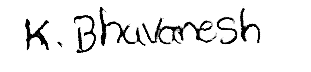 K. Bhuvanesh